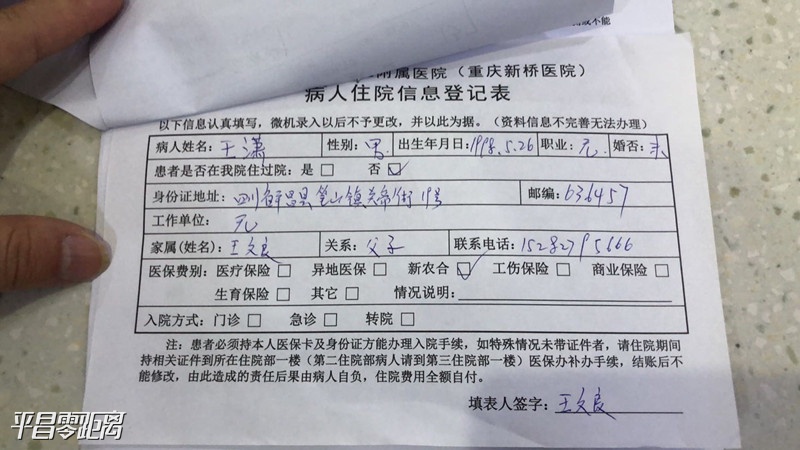 附属医院（重庆新桥医院）
病人住院信息登记表
以下信息认真填写，微机录入以后不予更改，并以此为据。（资料信息不完善无法办理）
病人姓名：王潇 性别：男 出生年月日：1998.5.26 职业：无 婚否：未
患者是否在我院住过院：是 □ 否 ☑
身份证地址：四川省平昌县笔山镇关帝街19号 邮编：636457
工作单位：无
家属(姓名)：王文良 关系：父子 联系电话：15282795666
医保费别：医疗保险 □ 异地医保 □ 新农合 ☑ 工伤保险 □ 商业保险 □
生育保险 □ 其它 □ 情况说明：
入院方式：门诊 □ 急诊 □ 转院 □
注：患者必须持本人医保卡及身份证方能办理入院手续，如特殊情况未带证件者，请住院期间
持相关证件到所在住院部一楼（第二住院部病人请到第三住院部一楼）医保办补办手续，结账后不
能修改，由此造成的责任后果由病人自负，住院费用全额自付。
填表人签字：王文良
平昌零距离